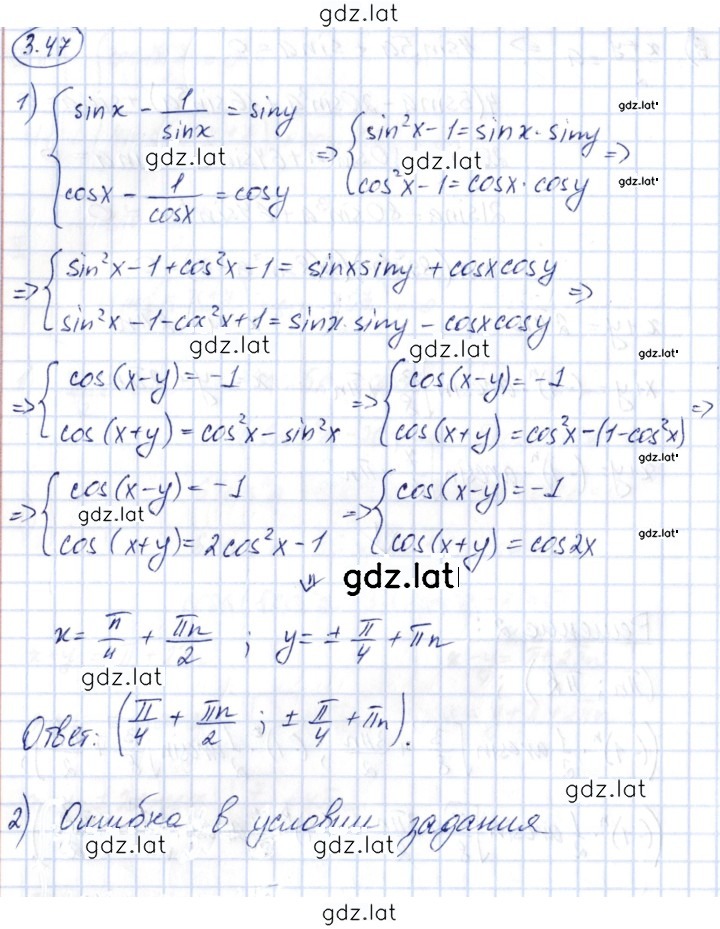 gdz.lat
3.47
1) { sinx - 1/sinx = siny
cosx - 1/cosx = cosy
=> { sin²x-1 = sinx·siny
cos²x-1 = cosx·cosy =>
gdz.lat
gdz.lat
gdz.lat
gdz.lat
=> { sin²x-1+cos²x-1 = sinxsiny + cosxcosy
sin²x-1-cos²x+1 = sinx·siny - cosxcosy =>
gdz.lat
gdz.lat
gdz.lat
=> { cos(x-y) = -1
cos(x+y) = cos²x - sin²x
=> { cos(x-y) = -1
cos(x+y) = cos²x-(1-cos²x) =>
gdz.lat
=> { cos(x-y) = -1
cos(x+y) = 2cos²x-1
=> { cos(x-y) = -1
cos(x+y) = cos2x
gdz.lat
gdz.lat
⇓
gdz.lat
x = π/4 + πn/2 ; y = ± π/4 + πn
gdz.lat
Ответ: (π/4 + πn/2 ; ± π/4 + πn).
gdz.lat
2) Ошибка в условии задания
gdz.lat
gdz.lat
gdz.lat